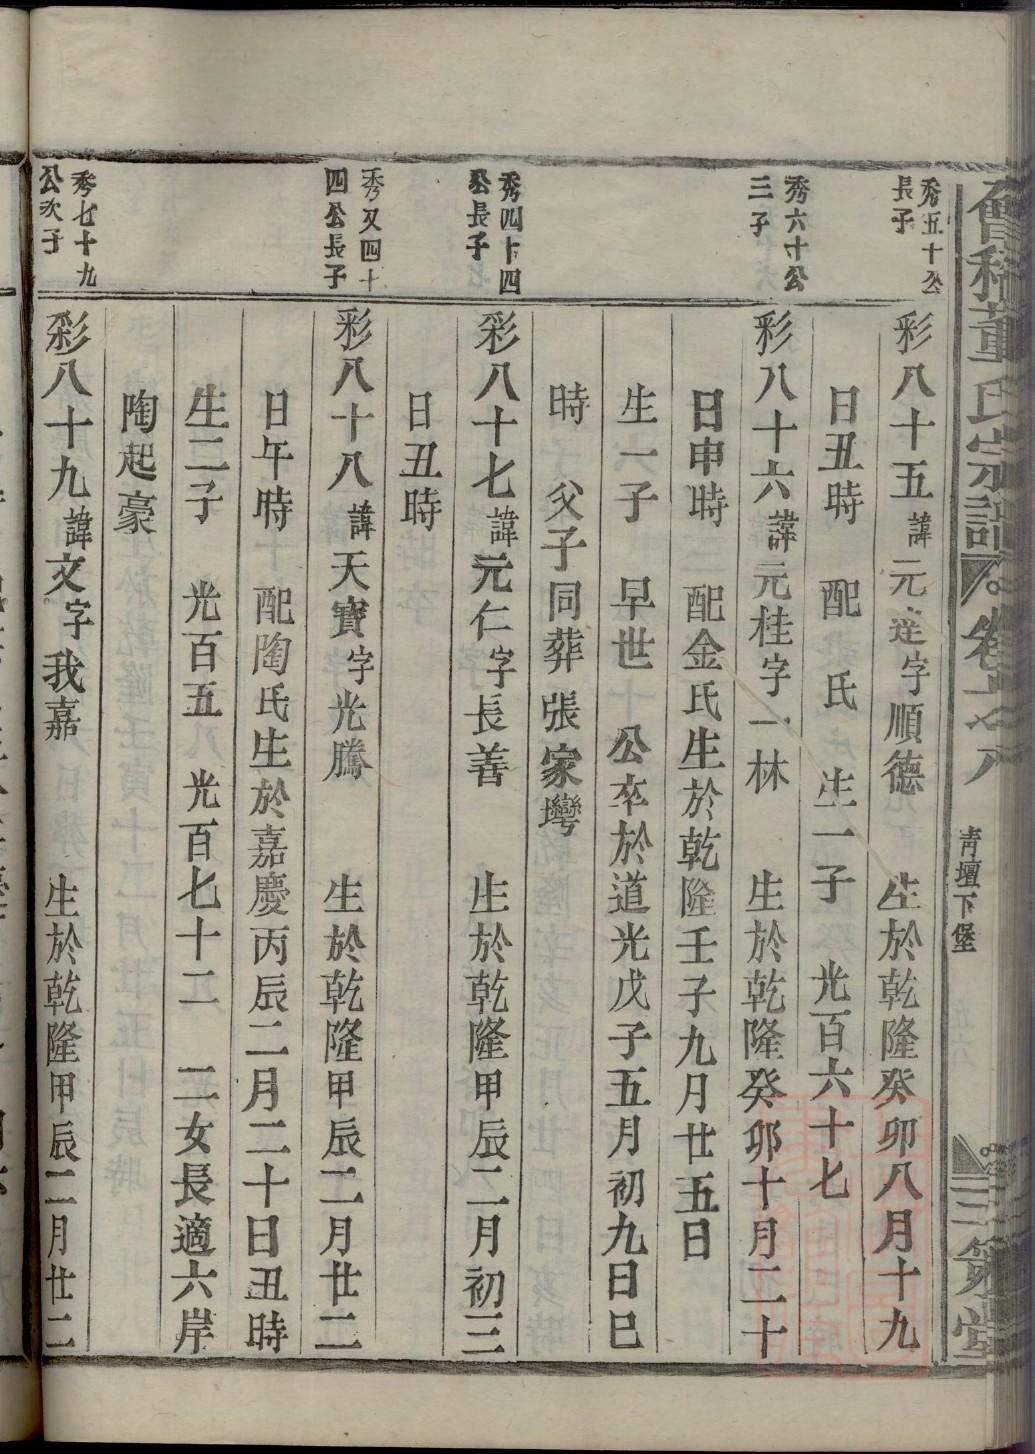 會稽董氏宗譜
青壇下堡
三策堂
秀五十公
長子
彩八十五諱元達字順德 生於乾隆癸卯八月十九
日丑時 配 氏 生一子 光百六十七
秀六十公
三子
彩八十六諱元桂字一林 生於乾隆癸卯十月二十
日申時 配金氏生於乾隆壬子九月廿五日
生一子 早世 公卒於道光戊子五月初九日巳
時 父子同葬張家壪
秀四十四
公長子
彩八十七諱元仁字長善 生於乾隆甲辰二月初三
日丑時
秀又四十
四公長子
彩八十八諱天寶字光騰 生於乾隆甲辰二月廿二
日午時 配陶氏生於嘉慶丙辰二月二十日丑時
生二子 光百五 光百七十二 二女長適六岸
陶起豪
秀七十九
公次子
彩八十九諱文字我嘉 生於乾隆甲辰二月廿二